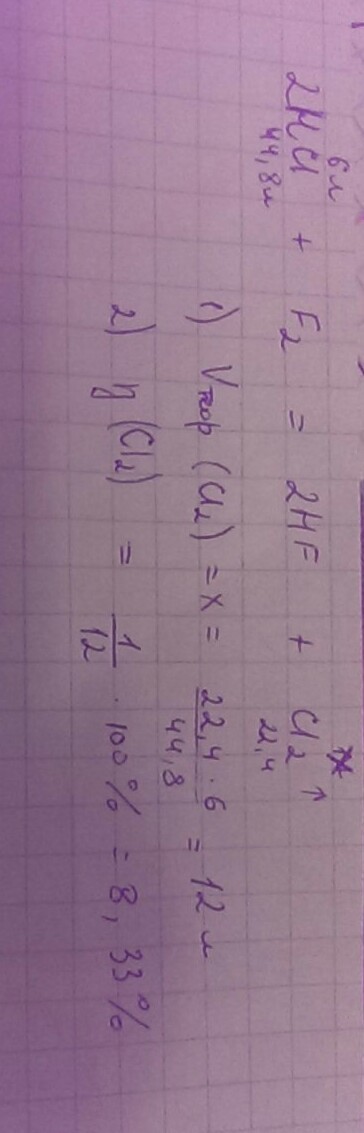 6 л x
2HCl + F₂ = 2HF + Cl₂ ↑
44,8 л 22,4
1) Vтеор (Cl₂) = x = 22,4 · 6 / 44,8 = 12 л
2) η (Cl₂) = 1/12 · 100% = 8,33%